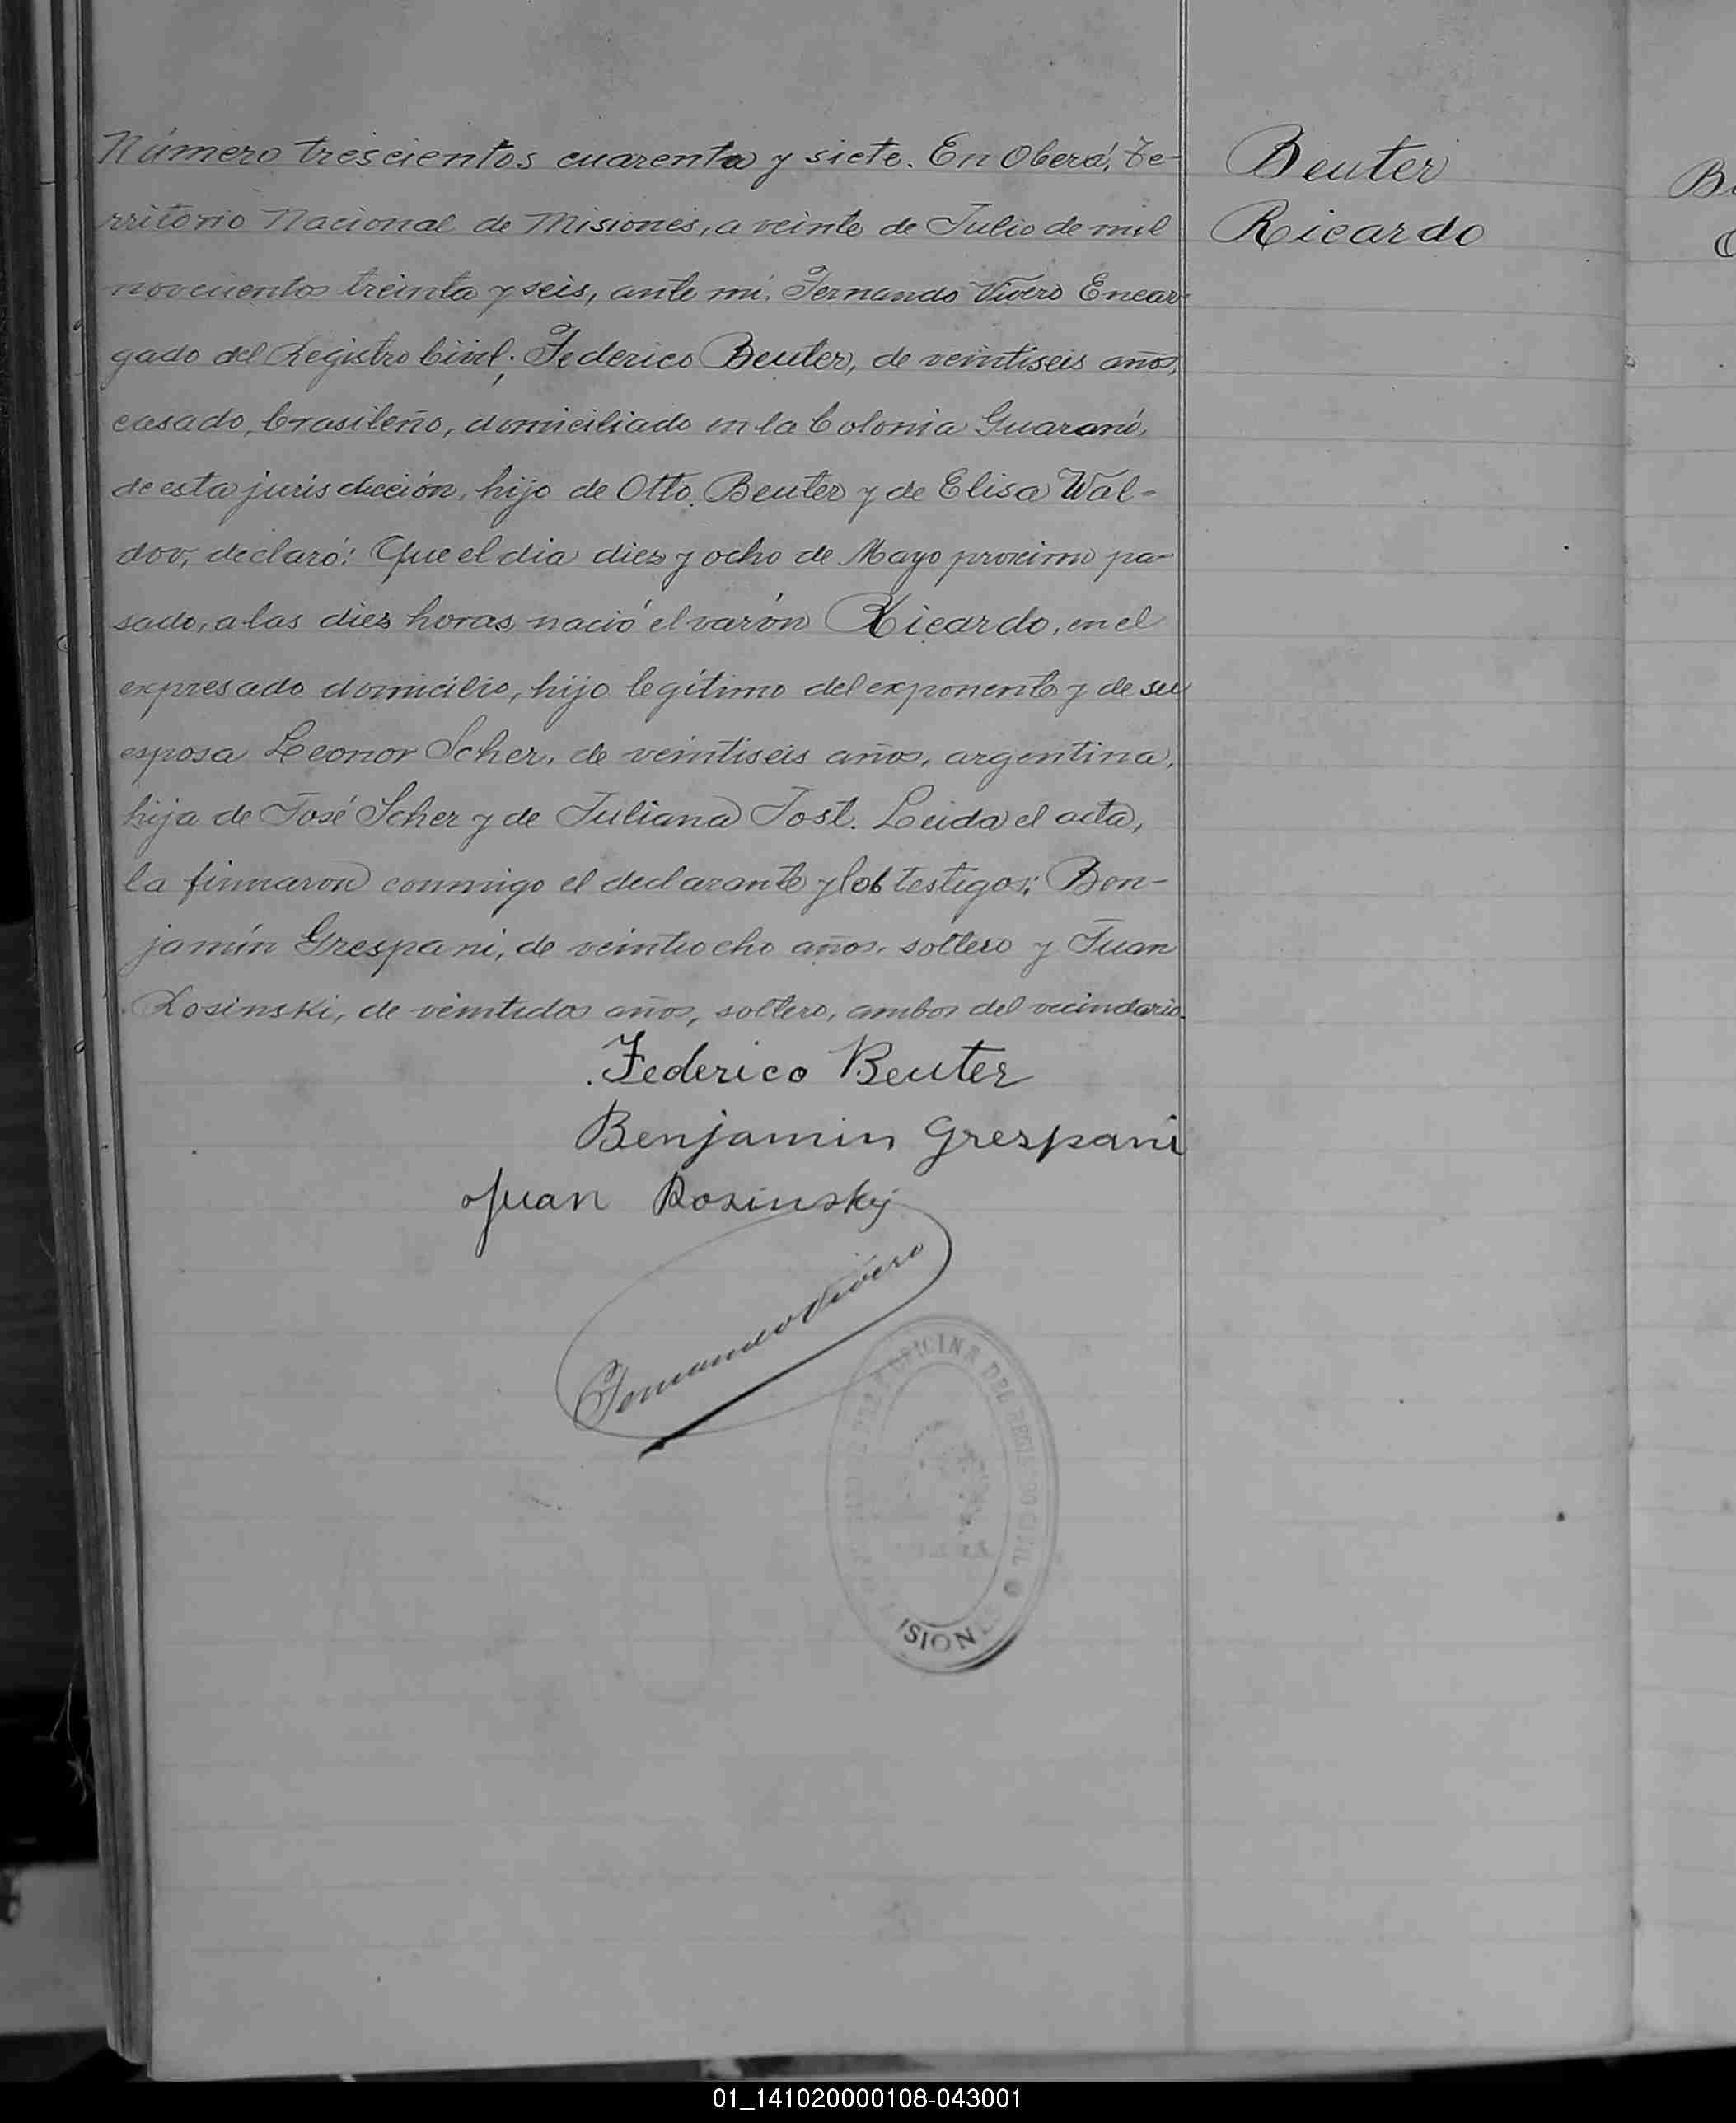 Número trescientos cuarenta y siete. En Oberá, Te-
rritorio Nacional de Misiones, a veinte de Julio de mil
novecientos treinta y seis, ante mi, Fernando Vivero Encar-
gado del Registro Civil; Federico Beuter, de veintiseis años,
casado, brasileño, domiciliado en la Colonia Guaraní,
de esta jurisdicción, hijo de Otto Beuter y de Elisa Wal-
dov, declaró: Que el dia dies y ocho de Mayo proximo pa-
sado, a las dies horas, nació el varón Ricardo, en el
expresado domicilio, hijo legítimo del exponente y de su
esposa Leonor Scher, de veintiseis años, argentina,
hija de José Scher y de Juliana Jost. Leida el acta,
la firmaron conmigo el declarante y los testigos: Ben-
jamín Grespani, de veintiocho años, soltero y Juan
Rosinski, de veintidos años, soltero, ambos del vecindario.
Federico Beuter
Benjamin Grespani
Juan Rosinsky
Fernando Vivero
OFICINA DEL REGISTRO CIVIL
ISION
Beuter
Ricardo
01_141020000108-043001